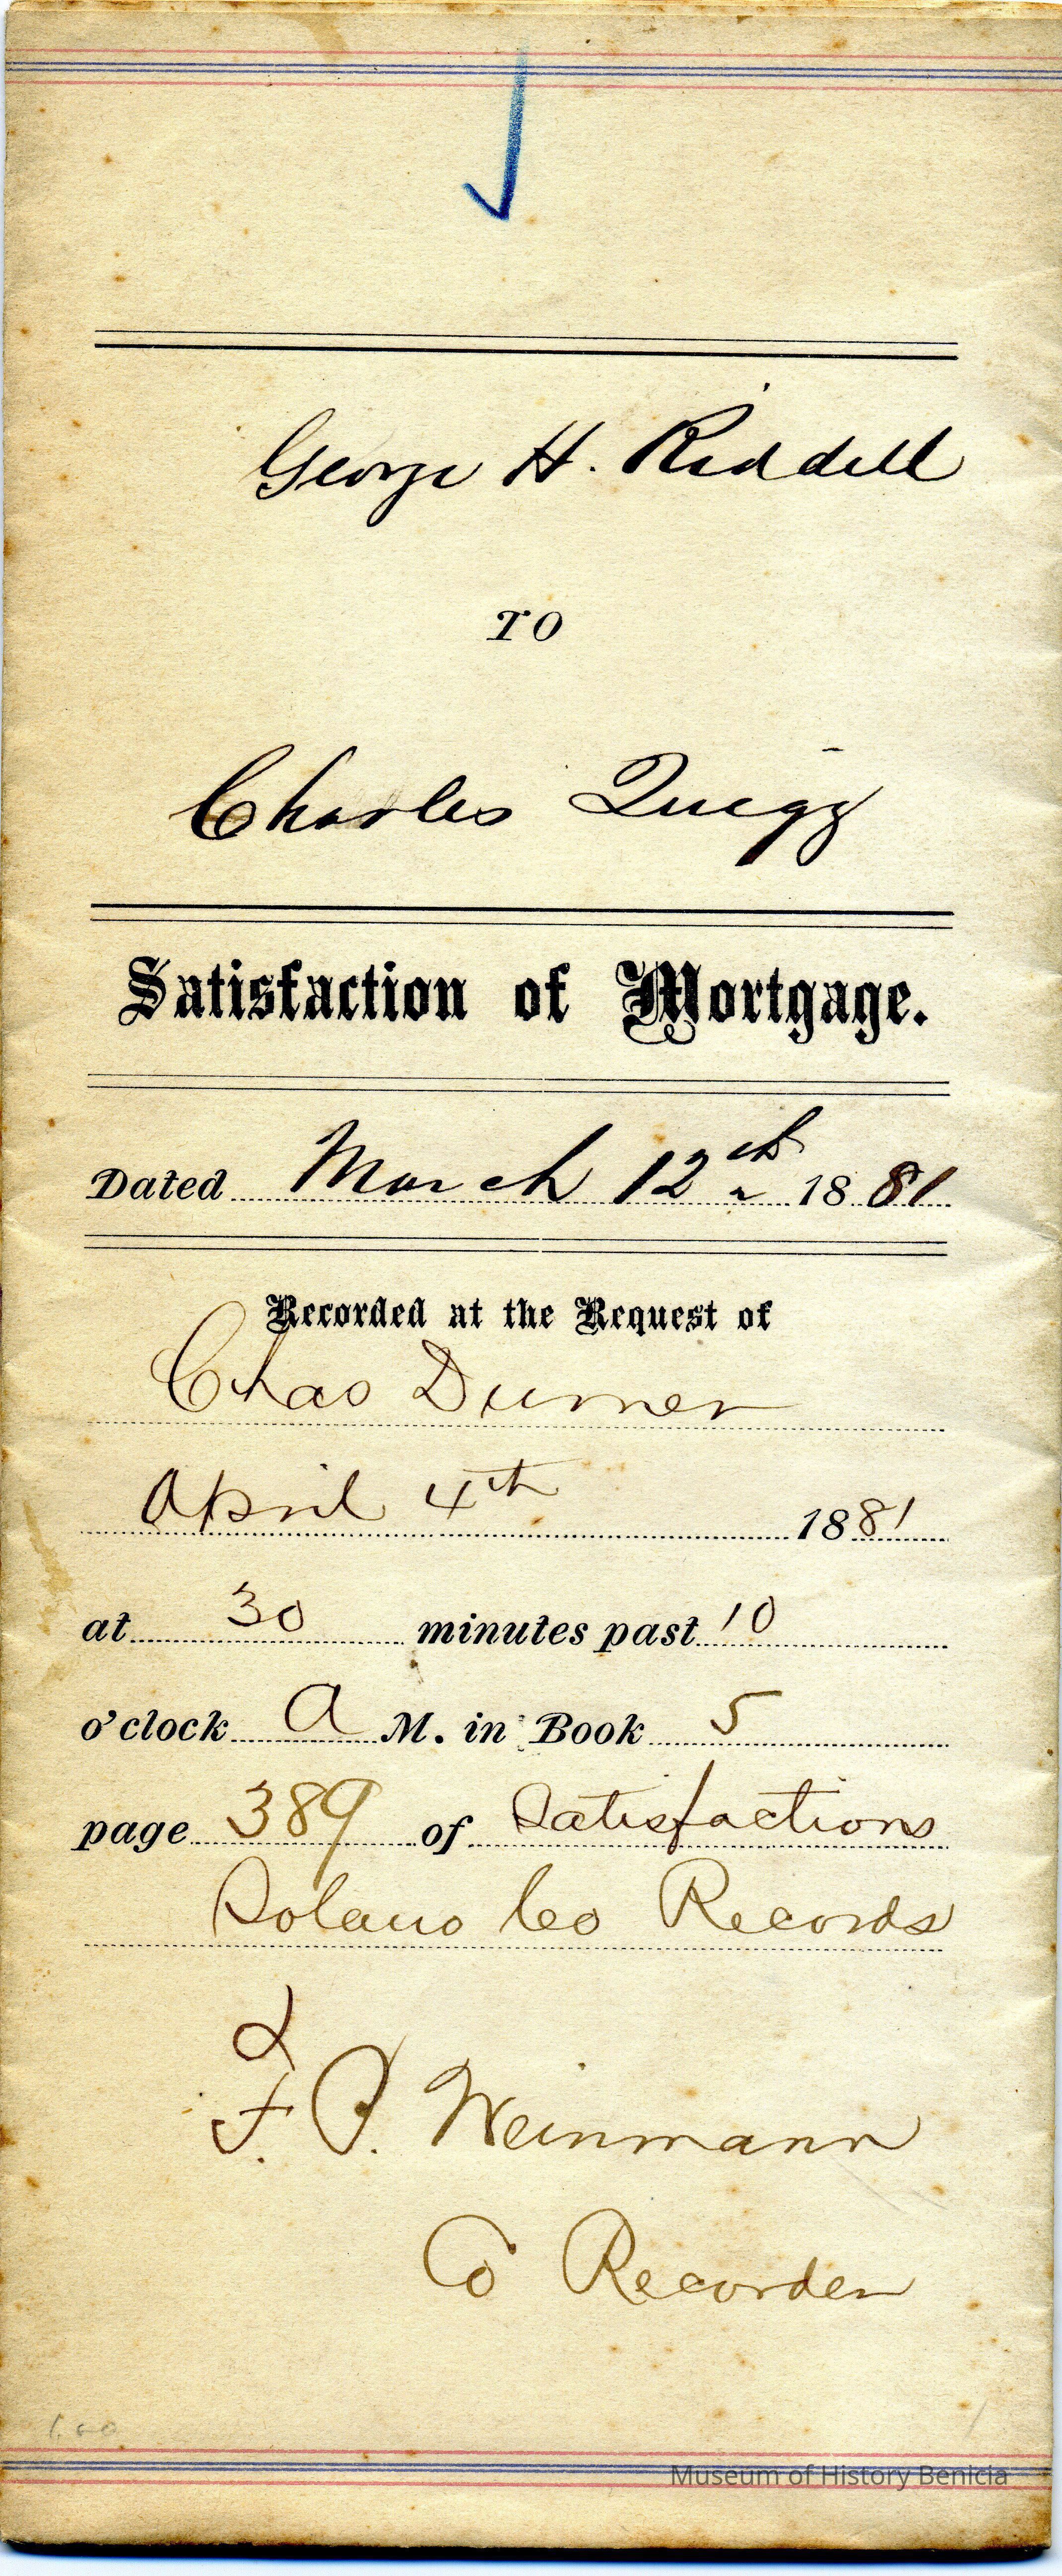 George H. Riddell
TO
Charles Quigg
Satisfaction of Mortgage.
Dated March 12th 1881
Recorded at the Request of
Chas Durner
April 4th 1881
at 30 minutes past 10
o'clock A M. in Book 5
page 389 of Satisfactions
Solano Co Records
F. P. Weinmann
Co Recorder
1.00
Museum of History Benicia